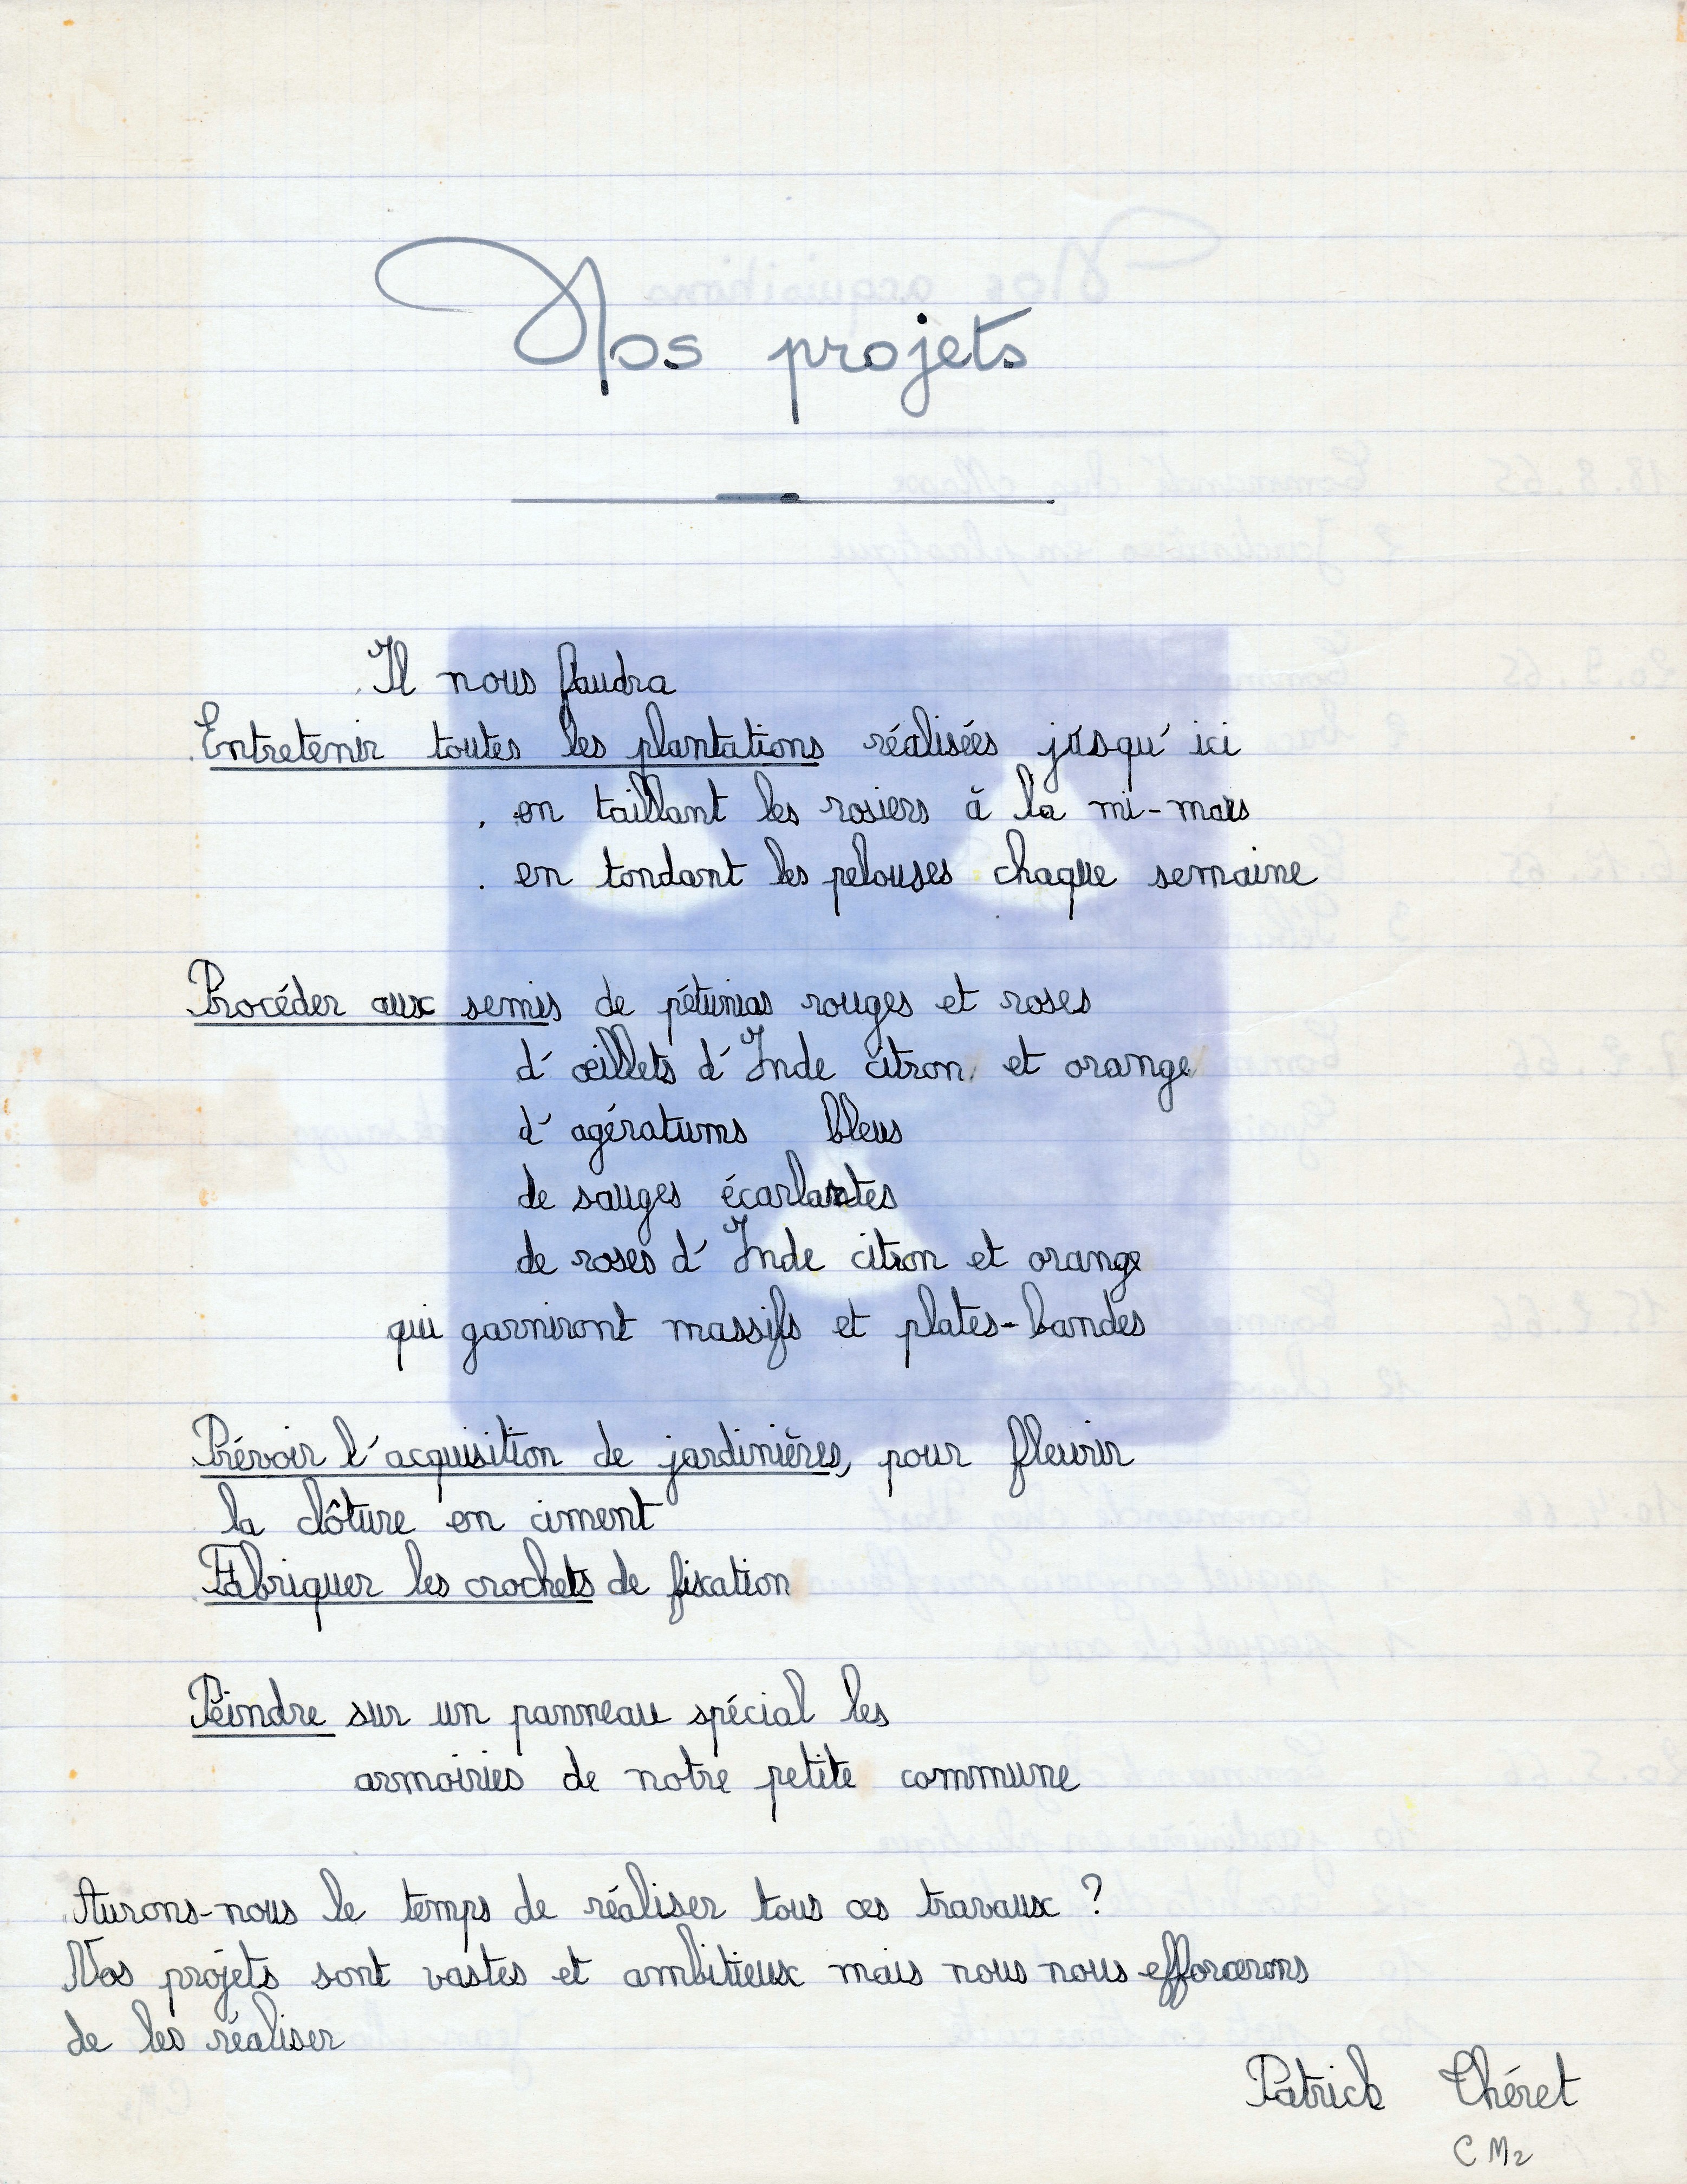 Nos projets
Il nous faudra
Entretenir toutes les plantations réalisées jusqu'ici
. en taillant les rosiers à la mi-mars
. en tondant les pelouses chaque semaine
Procéder aux semis de pétunias rouges et roses
d'œillets d'Inde citron et orange
d'agératums bleus
de sauges écarlates
de roses d'Inde citron et orange
qui garniront massifs et plates-bandes
Prévoir l'acquisition de jardinières, pour fleurir
la clôture en ciment
Fabriquer les crochets de fixation
Peindre sur un panneau spécial les
armoiries de notre petite commune
Aurons-nous le temps de réaliser tous ces travaux ?
Nos projets sont vastes et ambitieux mais nous nous efforcerons
de les réaliser
Patrick Chéret
CM2